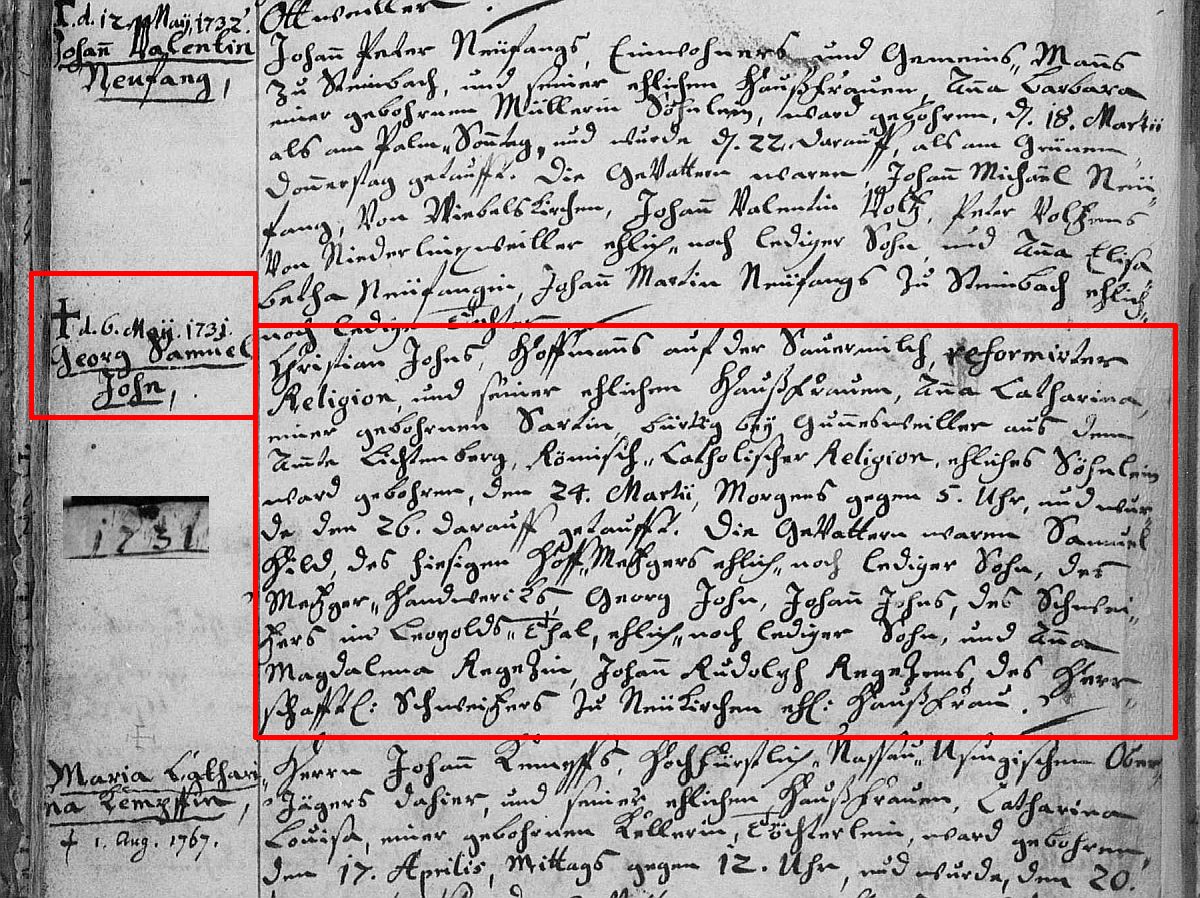 † d. 12 Maÿ, 1732.
Johañ Valentin
Neufang,
Ottweiller.
Johañ Peter Neüfangs, Einwohners und Gemeins„ Manns
zu Steinbach, und seiner ehlichen Haußfrauen, Aña Barbara
einer gebohrnen Müllerin Söhnlein, ward gebohren, d. 18. Martii
als am Palm„Sonntag, und wurde d. 22. darauff, als am Grünen„
Donnerstag getaufft. Die Gevattern waren, Johañ Michäel Neü„
fang, Von Wiebelskirchen, Johañ Valentin Voltz, Peter Voltzens
Von Niederlinxweiller ehlich„ noch lediger Sohn, und Aña Elisa
betha Neüfangin, Johañ Martin Neüfangs zu Steinbach ehlich„
noch ledige Tochter.
† d. 6. Maÿ. 1731.
Georg Samuel
John,
Christian Johns, Hoffmanns auf der Sauermilch, reformirter
Religion, und seiner ehlichen Haußfrauen, Aña Catharina,
einer gebohrnen Sartin, bürtig beÿ Guñesweiller aus dem
Ammte Lichtenberg, Römisch„ Catholischer Religion, ehliches Söhnlein
ward gebohren, den 24. Martii, Morgens gegen 5. Uhr, und wur„
de den 26. darauff getaufft. Die Gevattern waren Samuel
Hild, des hiesigen Hoff„Metzgers ehlich„ noch lediger Sohn, des
Metzger„ Handwercks, Georg John, Johañ Johns, des Schwei„
tzers im Leopolds„Thal, ehlich„ noch lediger Sohn, und Aña
Magdalena Regetzin, Johañ Rudolph Regetzens, des Herr„
schafftl: Schweitzers zu Neükirchen ehl: Haußfrau.
1731
Maria Cathari
na Kempffin,
† 1. Aug. 1767.
Herrn Johañ Kempffs, Hochfürstlich„ Nassau„Usingischen Ober„
Jägers dahier, und seiner ehlichen Haußfrauen, Catharina
Louisa, einer gebohrnen Kellerin, Töchterlein, ward gebohren,
den 17. Aprilis, Mittags gegen 12. Uhr, und wurde, den 20.